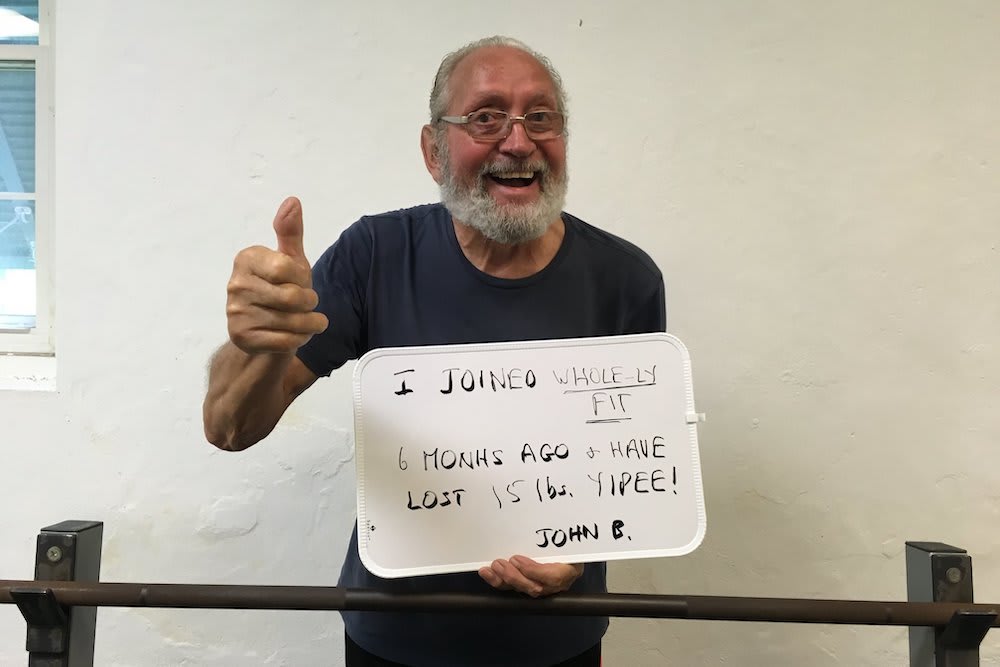 I JOINED WHOLE-LY
FIT
6 MONHS AGO & HAVE
LOST 15 lbs. YIPEE!
JOHN B.